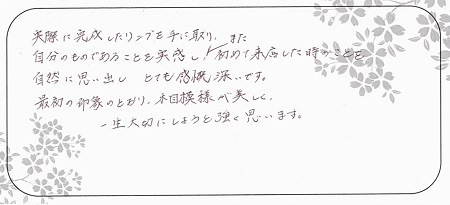 実際に完成したリングを手に取り、また
自分のものであることを実感し、初めて来店した時のことを
自然に思い出し とても感慨深いです。
最初の印象のとおり、木目模様が美しく、
一生大切にしようと強く思います。